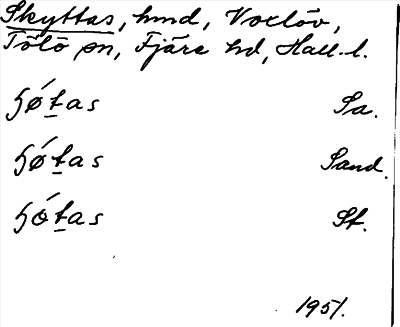 Skyttas, hmd, Voxlöv,
Tölö sn, Fjäre hd, Hall. l.
ɧǿt̠as Sa.
ɧǿt̠as Sand.
ɧót̠as St.
1951.